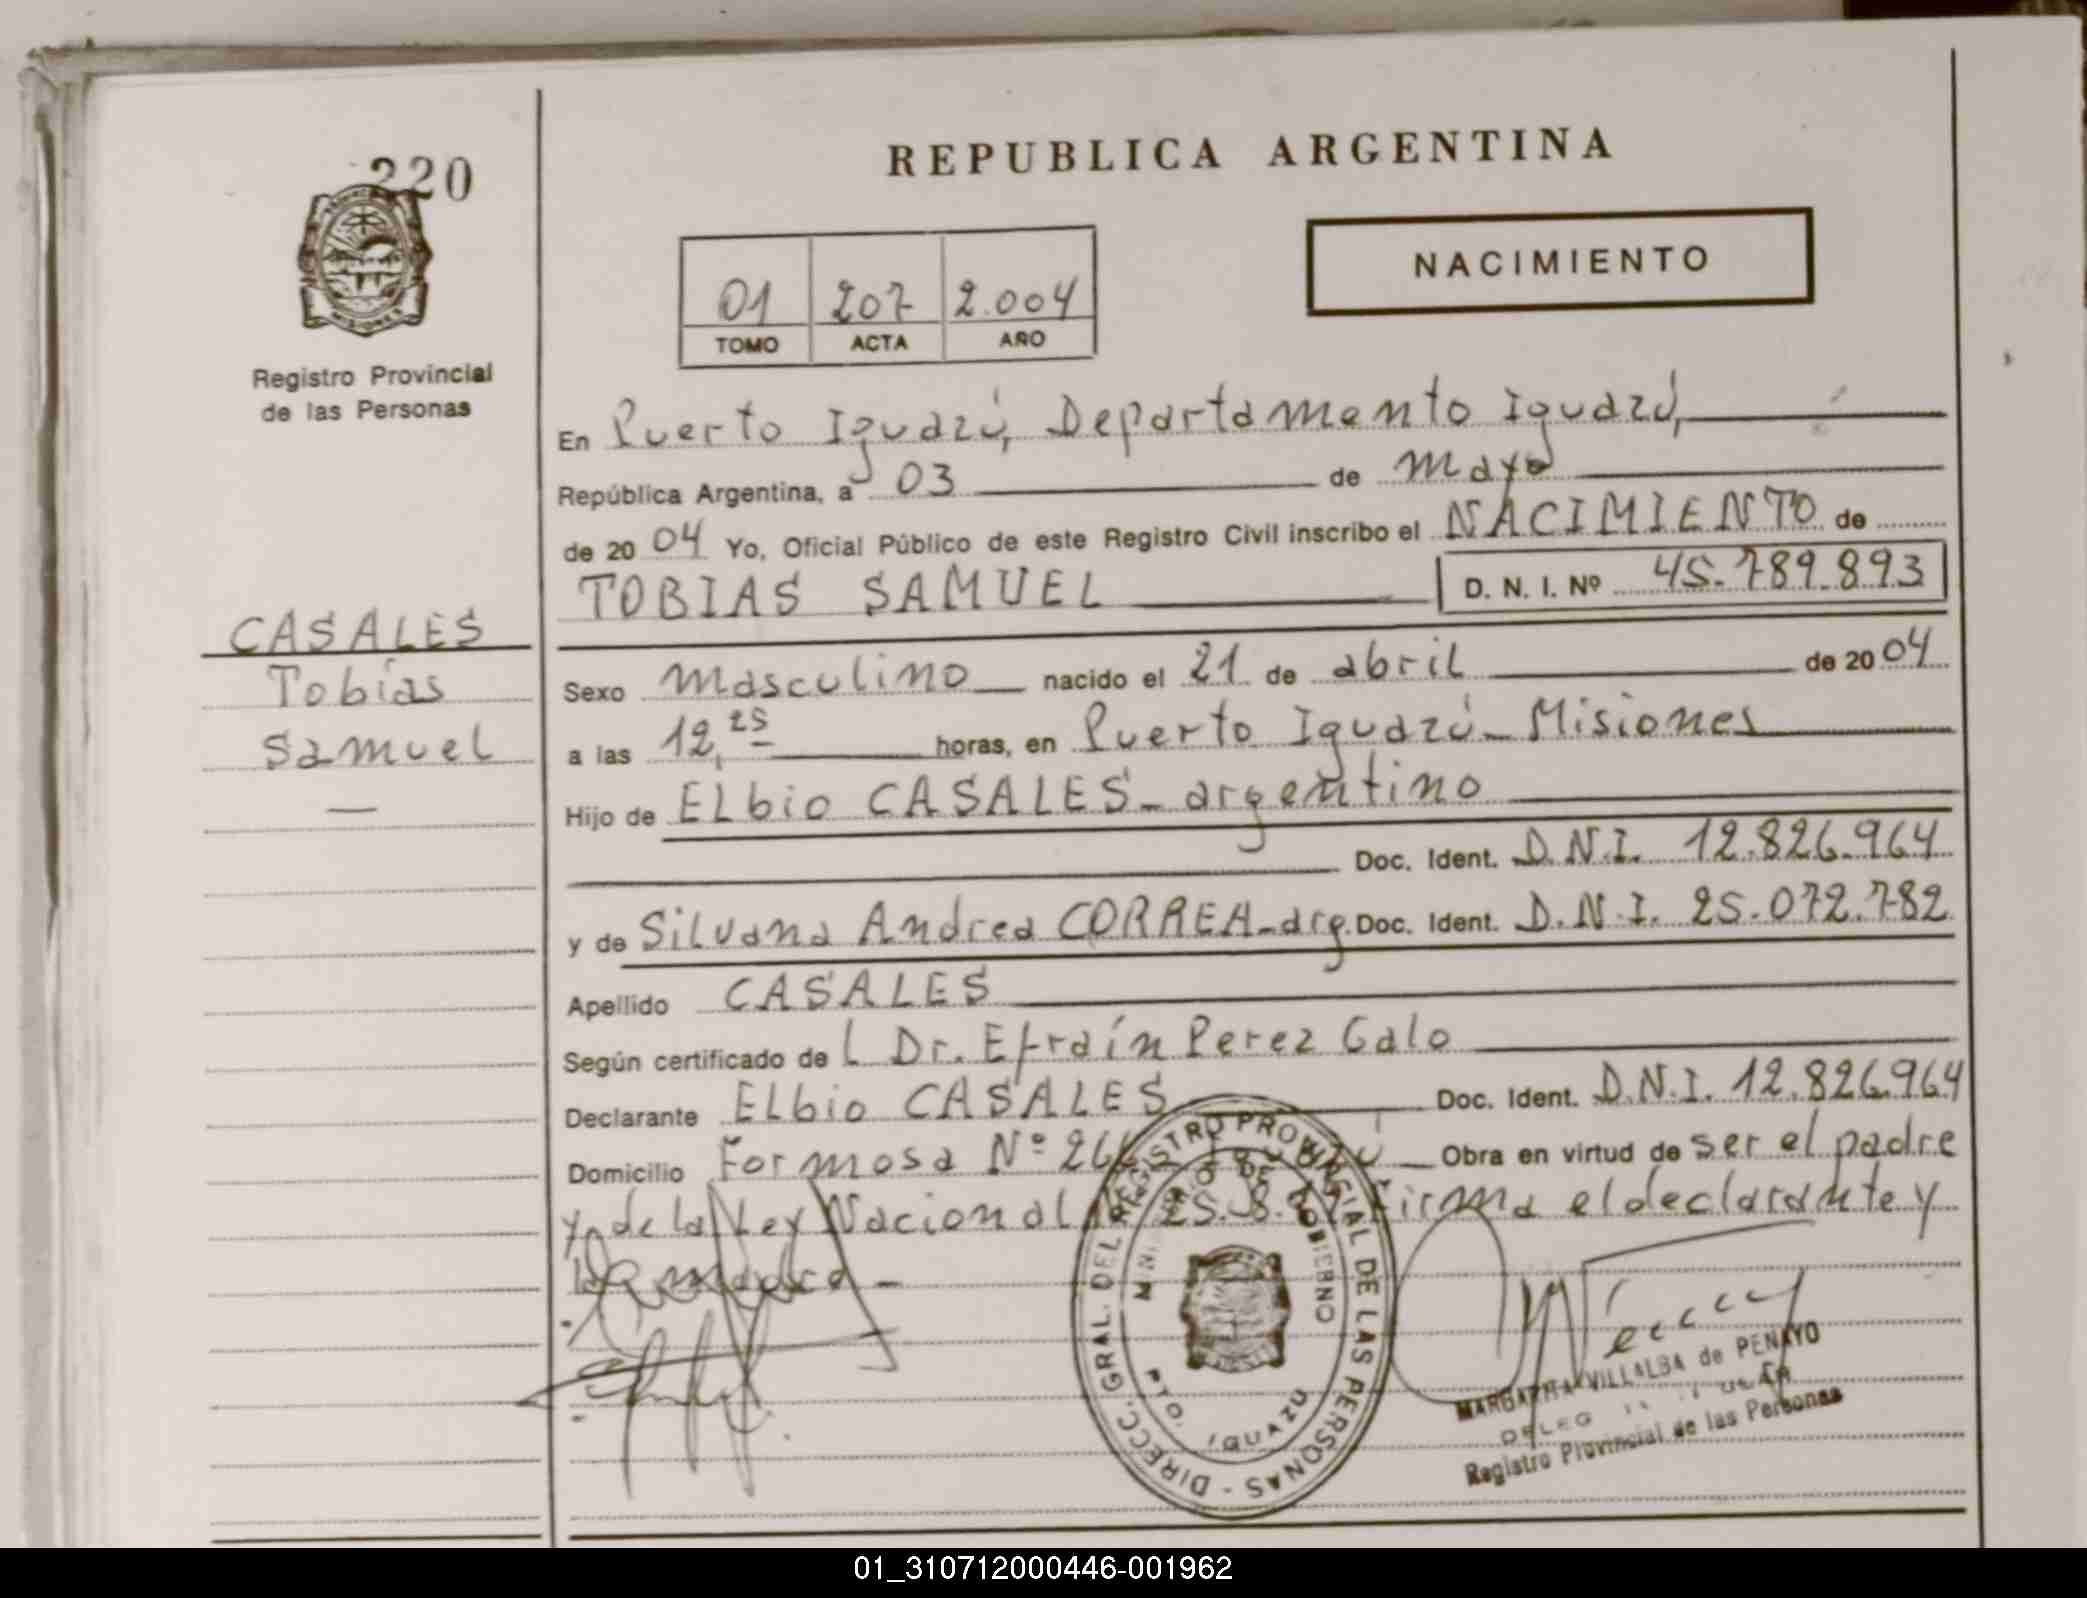 220
MISIONES
Registro Provincial
de las Personas
REPUBLICA ARGENTINA
NACIMIENTO
01 207 2.004
TOMO ACTA AÑO
En Puerto Iguazú, Departamento Iguazú,
República Argentina, a 03 de mayo
de 2004 Yo, Oficial Público de este Registro Civil inscribo el NACIMIENTO de
TOBIAS SAMUEL D. N. I. Nº 45.789.893
CASALES
Tobías
Samuel
Sexo masculino nacido el 21 de abril de 2004
a las 12,25 horas, en Puerto Iguazú - Misiones
Hijo de ELbio CASALES - argentino
Doc. Ident. D.N.I. 12.826.964
y de Silvana Andrea CORREA - arg. Doc. Ident. D.N.I. 25.072.782
Apellido CASALES
Según certificado de l Dr. Efraín Perez Galo
Declarante ELbio CASALES Doc. Ident. D.N.I. 12.826.964
Domicilio Formosa Nº Obra en virtud de ser el padre
y de la Ley Nacional firma el declarante y
la madre -
DIRECC. GRAL. DEL REGISTRO PROVINCIAL DE LAS PERSONAS -
MINISTERIO DE GOBIERNO
PTO. IGUAZU
MARGARITA VILLALBA de PENAYO
Registro Provincial de las Personas
01_310712000446-001962